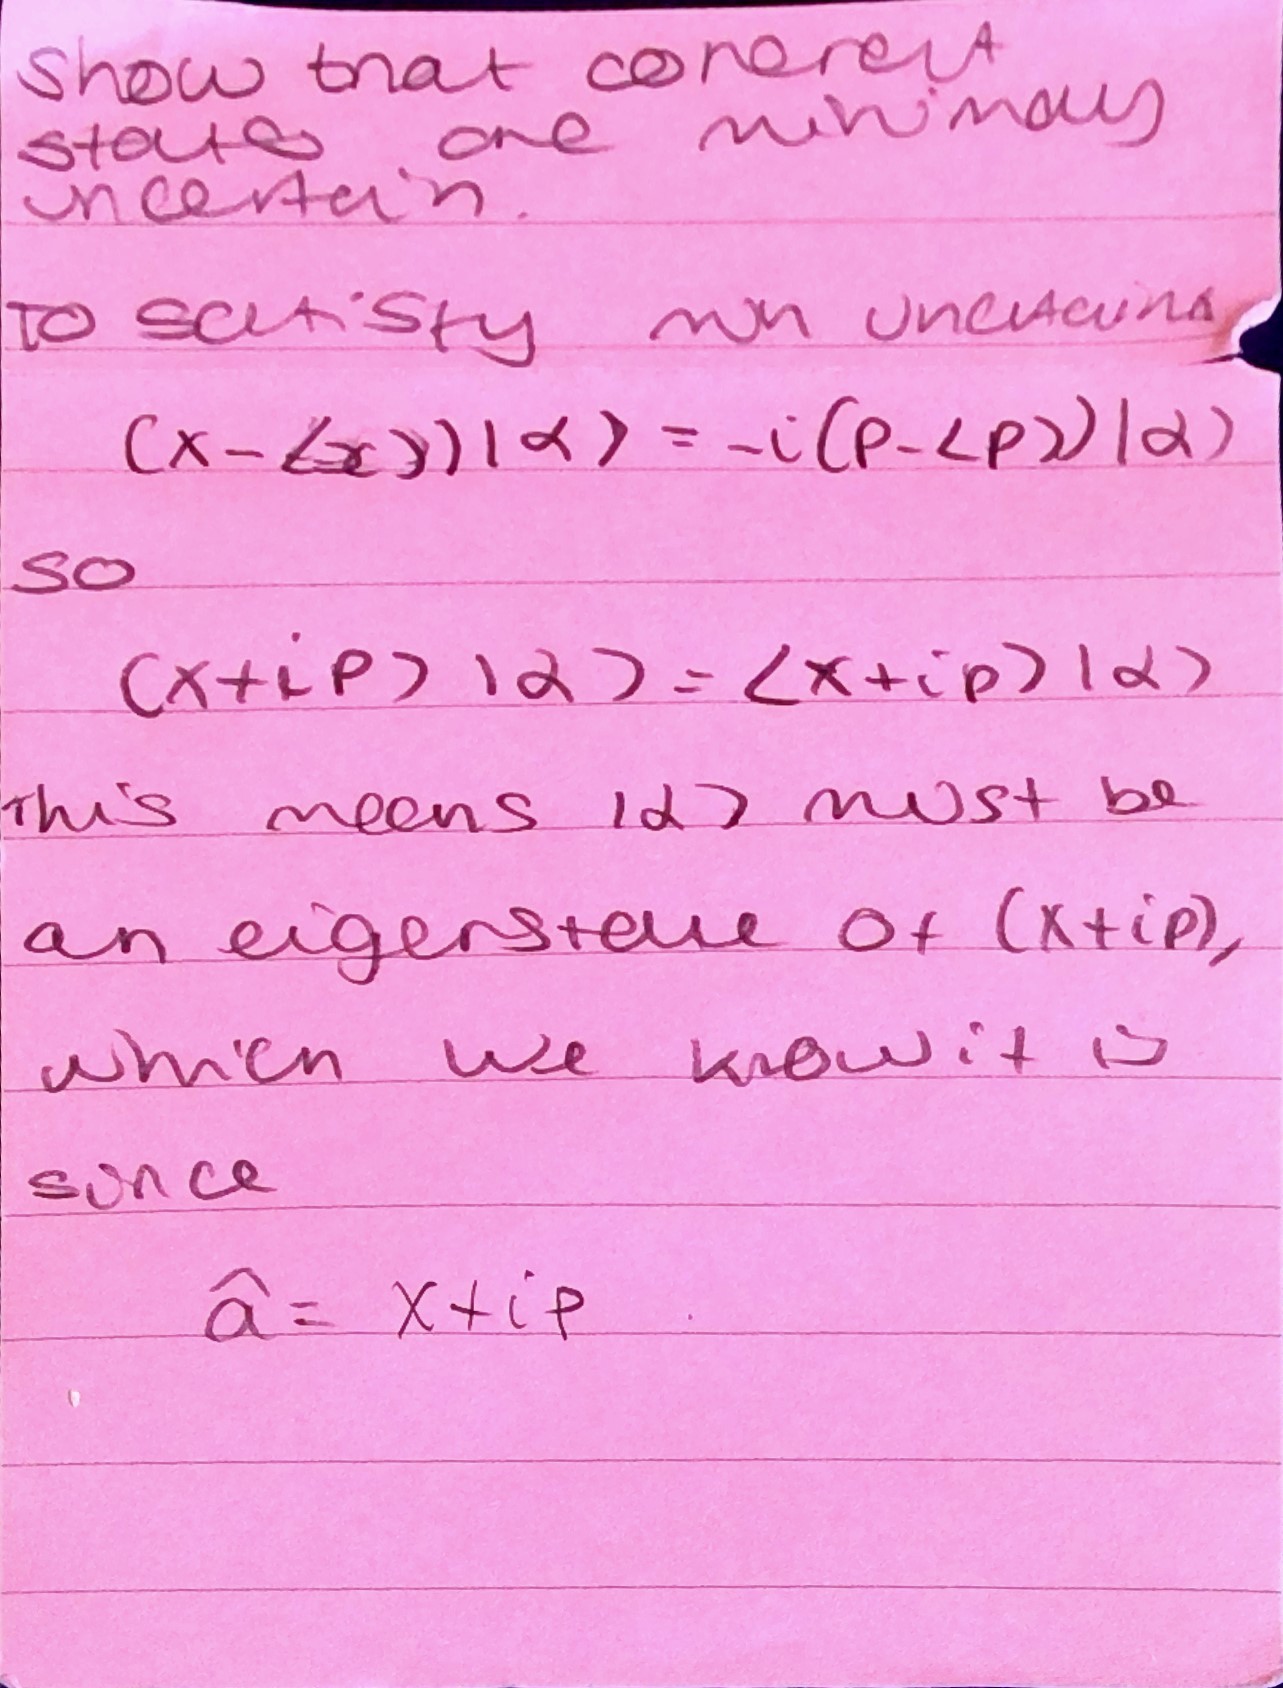 show that coherent
states are minimally
uncertain.
TO satisfy min uncertaint
(x-<x>)|α> = -i(p-<p>)|α>
so
(x+ip)|α> = <x+ip>|α>
This means |α> must be
an eigenstate of (x+ip),
which we know it is
since
â = x+ip